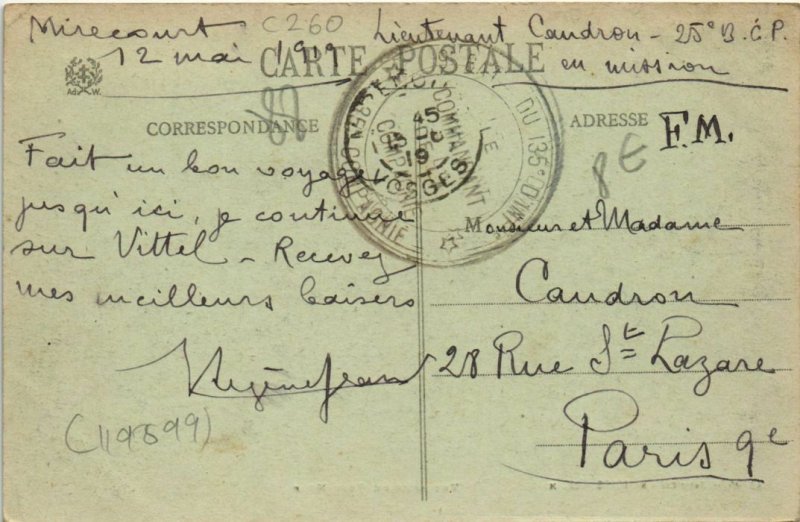 Mirecourt C260 Lieutenant Caudron - 25e B.C.P.
12 mai 1919 en mission
CARTE POSTALE
Ad. W.
80
CORRESPONDANCE
ADRESSE F.M.
8E
Fait un bon voyage
jusqu'ici, je continue
sur Vittel - Recevez
mes meilleurs baisers
Jean
(119899)
Monsieur et Madame
Caudron
28 Rue St Lazare
Paris 9e
DU 135e D'INF
COMMANDANT
COMPAGNIE
45
19
VOSGES